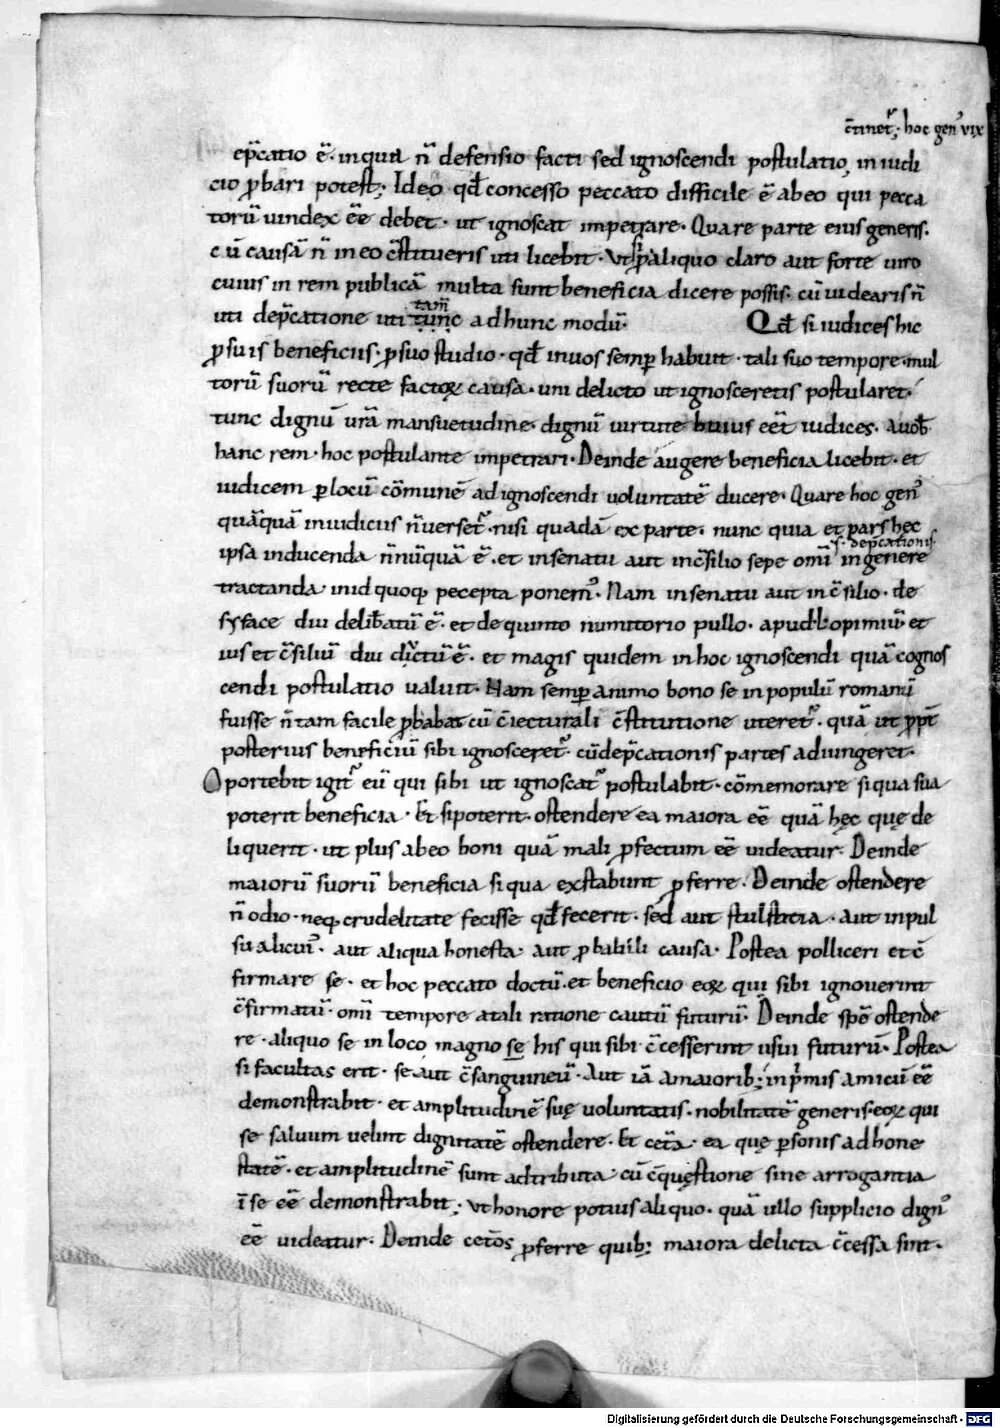 c̄tinet᷑; hoc gen᷒ uix
ep̄catio ē. in qua n̄ defensio facti sed ignoscendi postulatio, in iudi
cio ꝓbari potest; Ideo qđ concesso peccato difficile ē ab eo qui pecca
torū uindex eē debet. ut ignoscat impetrare. Quare parte eius generis.
c ū causā n̄ in eo c̄stitueris uti licebit. Vt si ꝓ aliquo claro aut forte uiro
cuius in rem publicā multa sunt beneficia dicere possis. cū uidearis n̄
uti dep̄catione uti tunc ad hunc modū. Qđ si iudices hic
tam̄
ꝓ suis beneficiis. ꝓ suo studio. qđ in uos semꝑ habuit. tali suo tempore. mul
torū suorū recte factoꝝ causa. uni delicto ut ignosceretis postularet.
tunc dignū urā mansuetudine. dignū uirtute huius eēt iudices. a uob̄
hanc rem. hoc postulante impetrari. Deinde augere beneficia licebit. et
iudicem ꝑ locū cōmunē ad ignoscendi uoluntatē ducere. Quare hoc gen᷒
quāquā in iudiciis n̄ uerset᷑. nisi quadā ex parte. nunc quia et pars hec
.s. dep̄cationis
ipsa inducenda n̄nūquā ē. et in senatu aut in c̄silio sepe om̄i in genere
tractanda in id quoqꝫ p̄cepta ponem᷒. Nam in senatu aut in c̄silio. de
syface diu delib̄atū ē. et de quinto numitorio pullo. apud L. opimiū. et
ius et c̄siliū diu dictū ē. et magis quidem in hoc ignoscendi quā cognos
cendi postulatio ualuit. Nam semꝑ animo bono se in populū romanū
fuisse n̄ tam facile ꝓbabat cū c̄iecturali c̄stitutione uteret᷑. quā ut ꝓpt̄
posterius beneficiū sibi ignosceret᷑. cū dep̄cationis partes adiungeret.
Oportebit igit᷑ eū qui sibi ut ignoscat᷑ postulabit. cōmemorare si qua sua
poterit beneficia. Et si poterit. ostendere ea maiora eē quā hęc quę de
liquerit. ut plus ab eo boni quā mali ꝓfectum eē uideatur. Deinde
maiorū suorū beneficia si qua exstabunt ꝓferre. Deinde ostendere
n̄ odio. neqꝫ crudelitate fecisse qđ fecerit. sed aut stultitia. aut inpul
su alicui᷒. aut aliqua honesta. aut ꝓbabili causa. Postea polliceri et c̄
firmare se. et hoc peccato doctū. et beneficio eoꝝ qui sibi ignouerint
c̄firmatū. om̄i tempore a tali ratione cautū futurū. Deinde spē ostende
re. aliquo se in loco magno se his qui sibi c̄cesserint usui futurū. Postea
si facultas erit. se aut c̄sanguineū. Aut iā a maiorib; in p̄mis amicū eē
demonstrabit. et amplitudinē suę uoluntatis. nobilitatē generis. eoꝝ qui
se saluum uelint dignitatē ostendere. Et cet̄a. ea quę ꝑsonis ad hone
statē. et amplitudinē sunt adtributa. cū c̄questione sine arrogantia
ī se eē demonstrabit; Vt honore potius aliquo. quā ullo supplicio dign᷒
eē uideatur. Deinde cet̄os ꝓferre quib; maiora delicta c̄cessa sint.
Digitalisierung gefördert durch die Deutsche Forschungsgemeinschaft - DFG